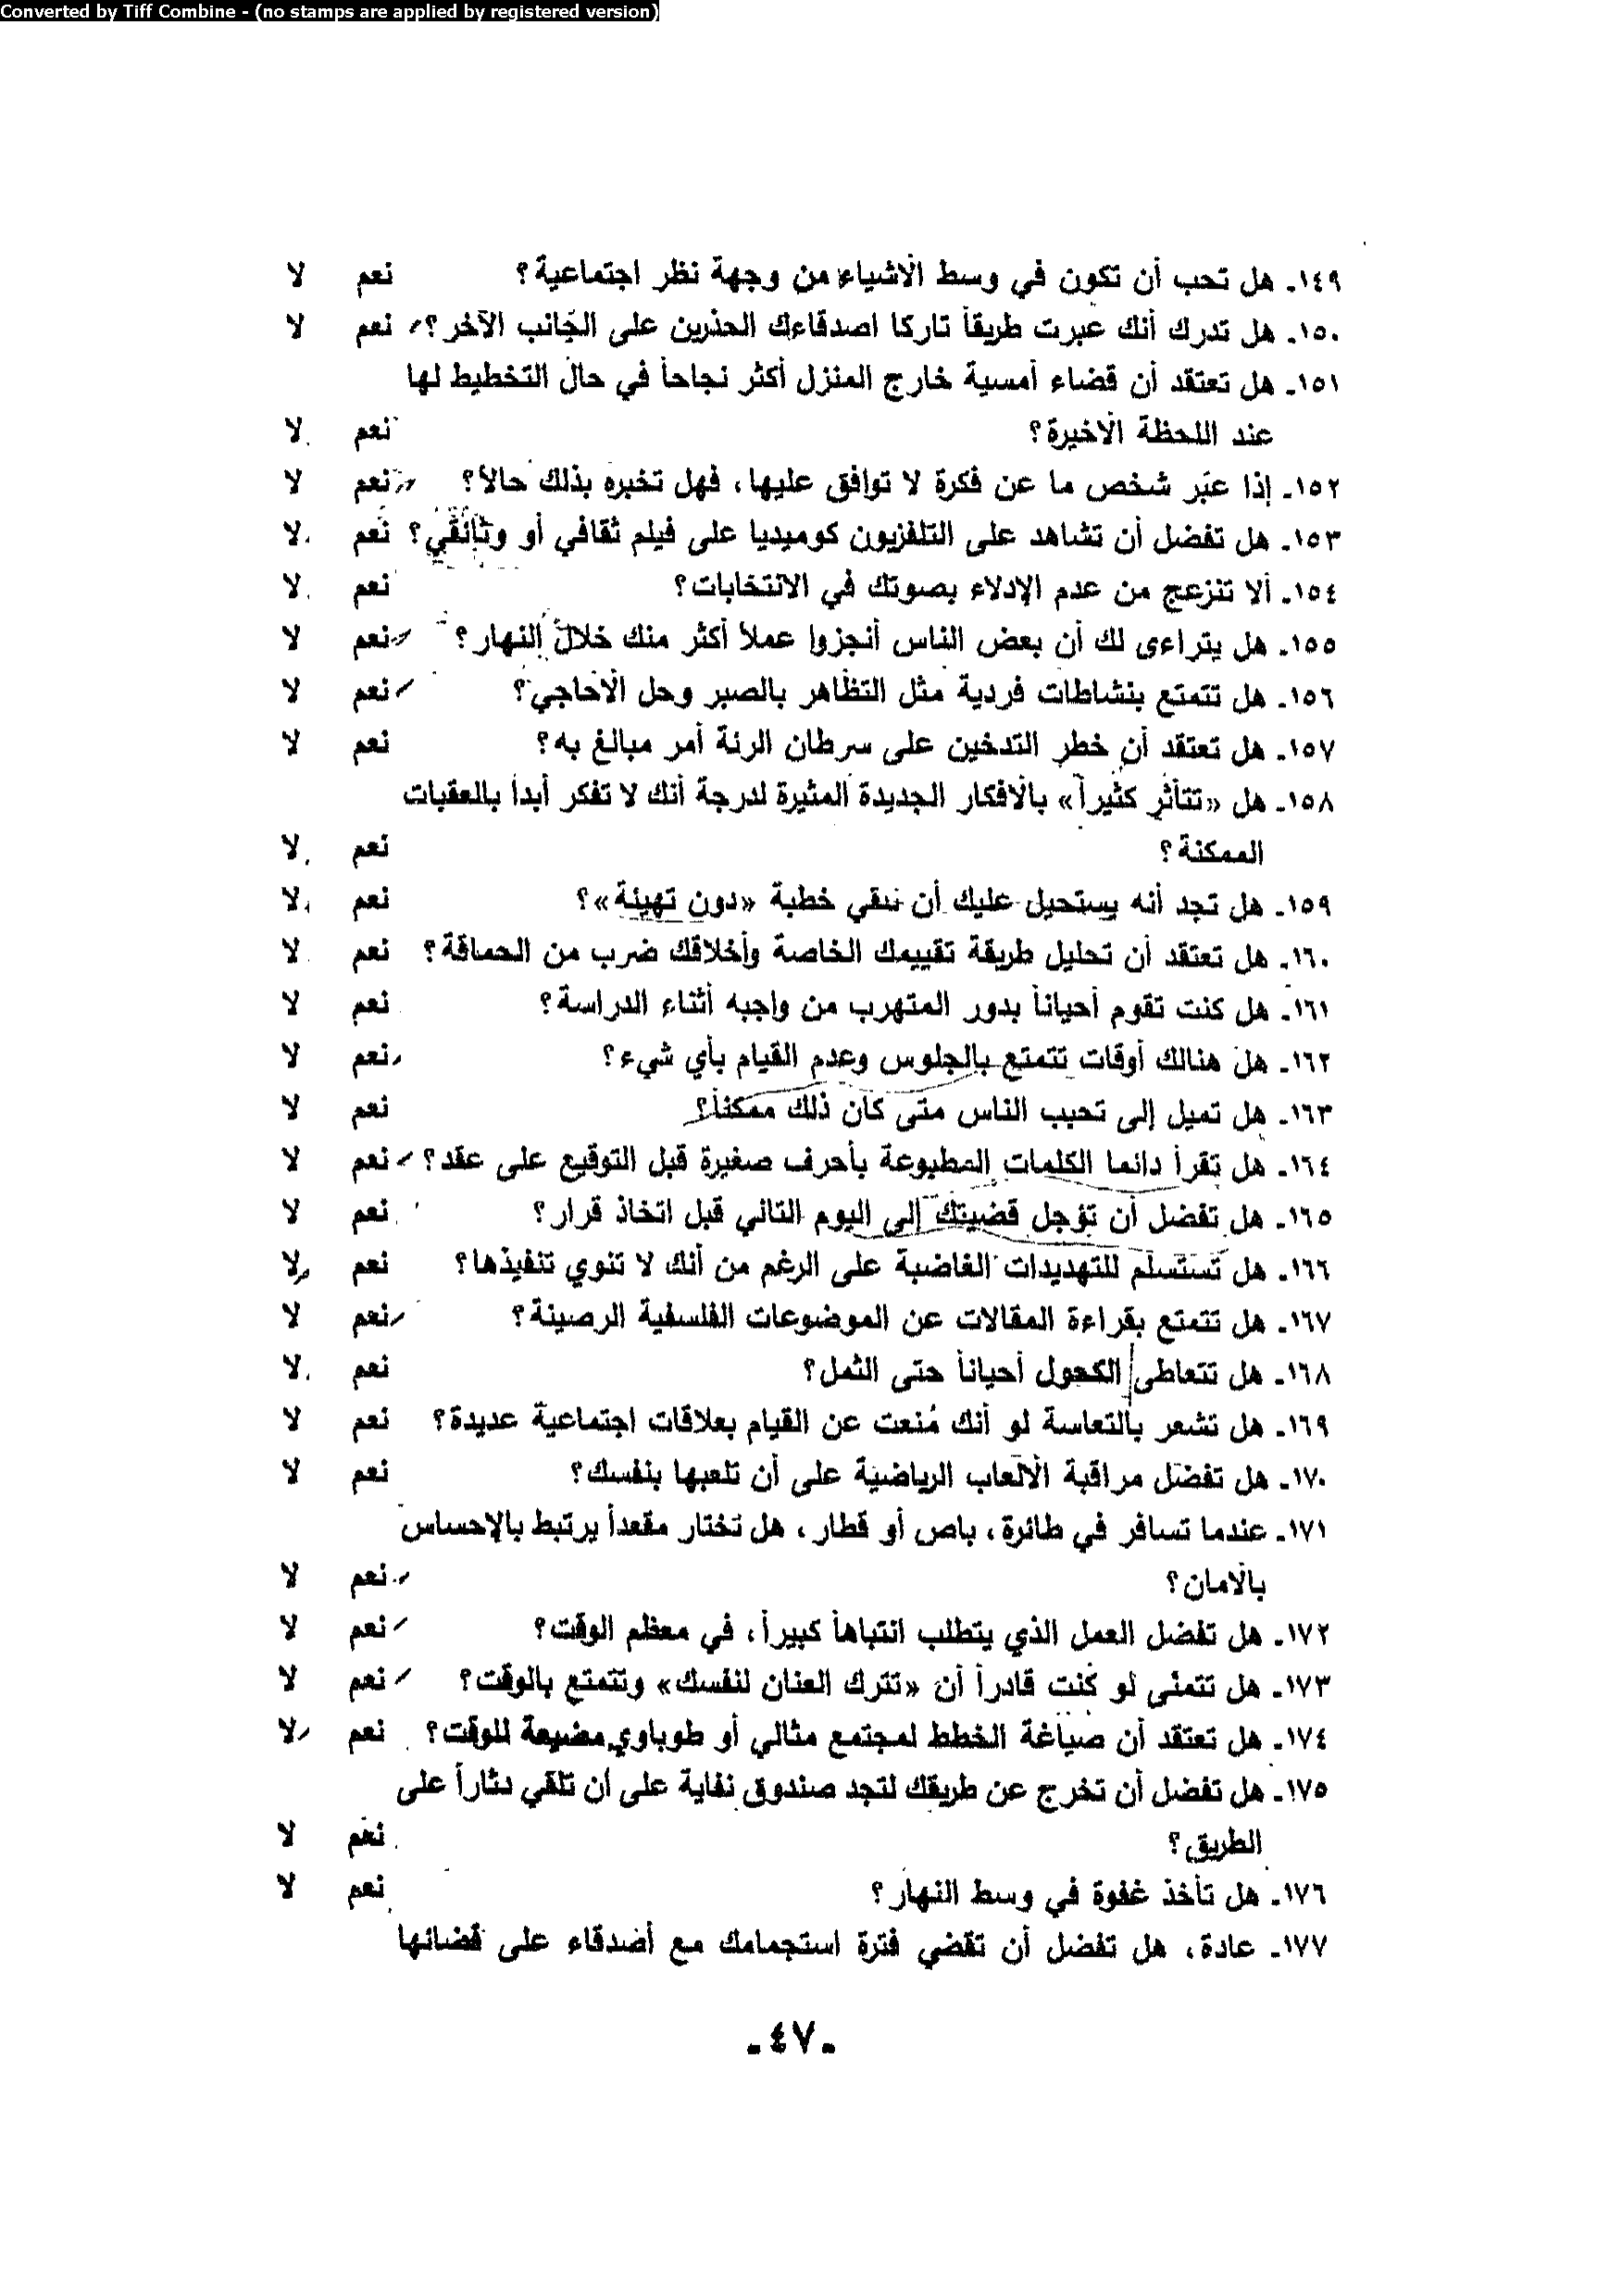 Converted by Tiff Combine - (no stamps are applied by registered version)
١٤٩ـ هل تحب أن تكون في وسط الأشياء من وجهة نظر اجتماعية؟ نعم لا
١٥٠ـ هل تدرك أنك عبرت طريقاً تاركا اصدقاءك الحذرين على الجانب الآخر؟ نعم لا
١٥١ـ هل تعتقد أن قضاء أمسية خارج المنزل أكثر نجاحاً في حال التخطيط لها
عند اللحظة الأخيرة؟ نعم لا
١٥٢ـ إذا عبّر شخص ما عن فكرة لا توافق عليها، فهل تخبره بذلك حالاً؟ نعم لا
١٥٣ـ هل تفضل أن تشاهد على التلفزيون كوميديا على فيلم ثقافي أو وثائقي؟ نعم لا
١٥٤ـ ألا تنزعج من عدم الإدلاء بصوتك في الانتخابات؟ نعم لا
١٥٥ـ هل يتراءى لك أن بعض الناس أنجزوا عملاً أكثر منك خلال النهار؟ نعم لا
١٥٦ـ هل تتمتع بنشاطات فردية مثل التظاهر بالصبر وحل الأحاجي؟ نعم لا
١٥٧ـ هل تعتقد أن خطر التدخين على سرطان الرئة أمر مبالغ به؟ نعم لا
١٥٨ـ هل «تتأثر كثيراً» بالأفكار الجديدة المثيرة لدرجة أنك لا تفكر أبداً بالعقبات
الممكنة؟ نعم لا
١٥٩ـ هل تجد أنه يستحيل عليك أن تلقي خطبة «دون تهيئة»؟ نعم لا
١٦٠ـ هل تعتقد أن تحليل طريقة تقييمك الخاصة وأخلاقك ضرب من الحماقة؟ نعم لا
١٦١ـ هل كنت تقوم أحياناً بدور المتهرب من واجبه أثناء الدراسة؟ نعم لا
١٦٢ـ هل هنالك أوقات تتمتع بالجلوس وعدم القيام بأي شيء؟ نعم لا
١٦٣ـ هل تميل إلى تحبب الناس متى كان ذلك ممكناً؟ نعم لا
١٦٤ـ هل تقرأ دائما الكلمات المطبوعة بأحرف صغيرة قبل التوقيع على عقد؟ نعم لا
١٦٥ـ هل تفضل أن تؤجل قضيتك إلى اليوم التالي قبل اتخاذ قرار؟ نعم لا
١٦٦ـ هل تستسلم للتهديدات الغاضبة على الرغم من أنك لا تنوي تنفيذها؟ نعم لا
١٦٧ـ هل تتمتع بقراءة المقالات عن الموضوعات الفلسفية الرصينة؟ نعم لا
١٦٨ـ هل تتعاطى الكحول أحياناً حتى الثمل؟ نعم لا
١٦٩ـ هل تشعر بالتعاسة لو أنك مُنعت عن القيام بعلاقات اجتماعية عديدة؟ نعم لا
١٧٠ـ هل تفضل مراقبة الألعاب الرياضية على أن تلعبها بنفسك؟ نعم لا
١٧١ـ عندما تسافر في طائرة، باص أو قطار، هل تختار مقعداً يرتبط بالإحساس
بالأمان؟ نعم لا
١٧٢ـ هل تفضل العمل الذي يتطلب انتباهاً كبيراً، في معظم الوقت؟ نعم لا
١٧٣ـ هل تتمنّى لو كنت قادراً أن «تترك العنان لنفسك» وتتمتع بالوقت؟ نعم لا
١٧٤ـ هل تعتقد أن صياغة الخطط لمجتمع مثالي أو طوباوي مضيعة للوقت؟ نعم لا
١٧٥ـ هل تفضل أن تخرج عن طريقك لتجد صندوق نفاية على أن تلقي دثاراً على
الطريق؟ نعم لا
١٧٦ـ هل تأخذ غفوة في وسط النهار؟ نعم لا
١٧٧ـ عادة، هل تفضل أن تقضي فترة استجمامك مع أصدقاء على قضائها
ـ ٤٧ ـ